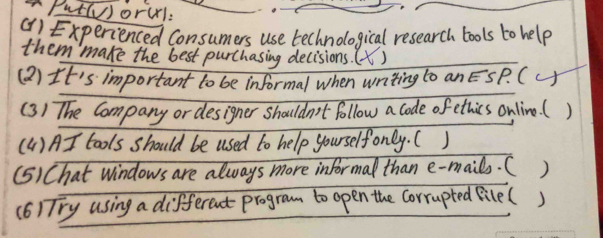 Put(√) or(x):
(1) Experienced Consumers use technological research tools to help
them make the best purchasing decisions.(x)
(2) It's important to be informal when writing to an ESP. (✓)
(3) The Company or designer shouldn't follow a code of ethics online.( )
(4) AI tools should be used to help yourself only.( )
(5) Chat windows are always more informal than e-mails.( )
(6) Try using a different program to open the corrupted file( )